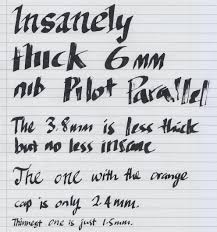 Insanely
thick 6mm
nib Pilot Parallel
The 3.8mm is less thick
but no less insane
The one with the orange
cap is only 2.4mm.
Thinnest one is just 1.5mm.